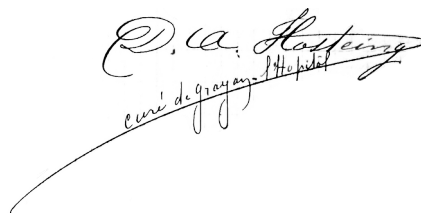 D. A. Hosteing
curé de Grayan-l'Hopital